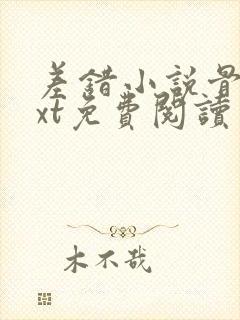 差錯小説骨
xt免費閱讀
木不哉